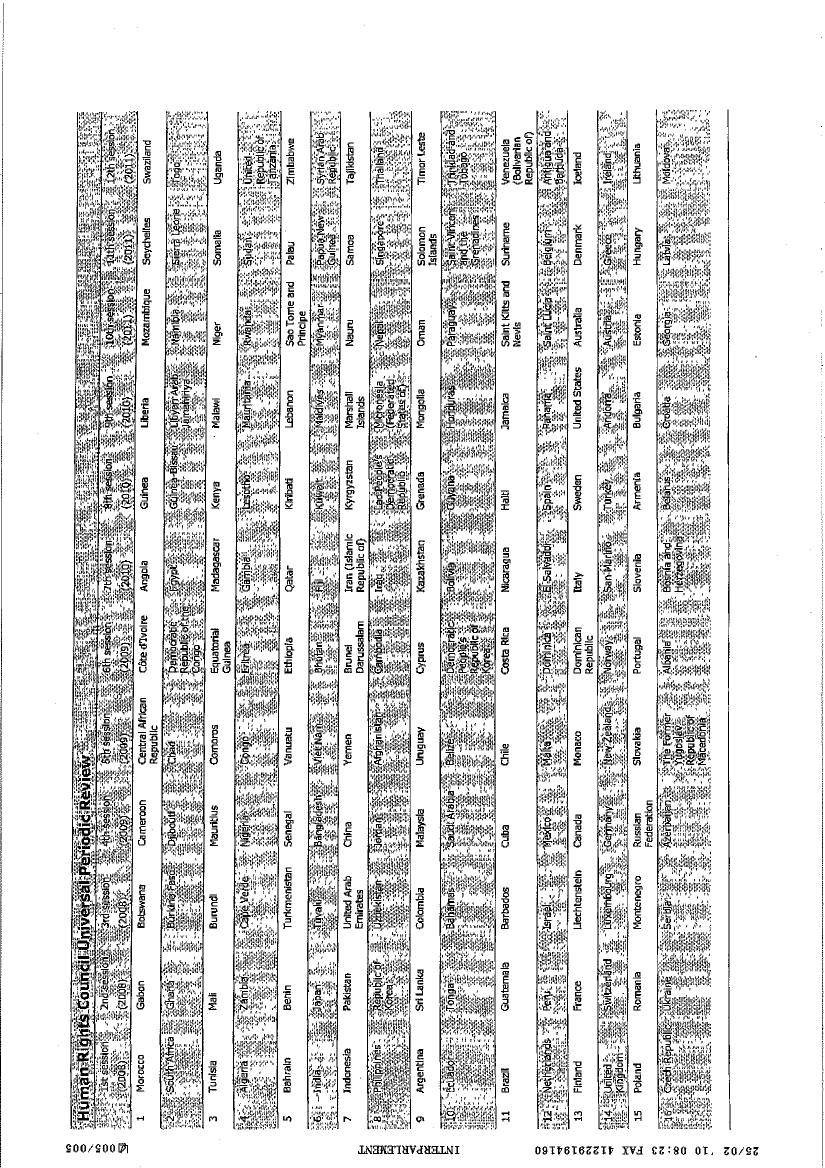 Human Rights Council Universal Periodic Review
1st session (2008) 2nd session (2008) 3rd session (2008) 4th session (2009) 5th session (2009) 6th session (2009) 7th session (2010) 8th session (2010) 9th session (2010) 10th session (2011) 11th session (2011) 12th session (2011)
1 Morocco Gabon Botswana Cameroon Central African Republic Côte d'Ivoire Angola Guinea Liberia Mozambique Seychelles Swaziland
2 South Africa Ghana Burkina Faso Djibouti Chad Democratic Republic of the Congo Egypt Guinea-Bissau Libyan Arab Jamahiriya Namibia Sierra Leone Togo
3 Tunisia Mali Burundi Mauritius Comoros Equatorial Guinea Madagascar Kenya Malawi Niger Somalia Uganda
4 Algeria Zambia Cape Verde Nigeria Congo Eritrea Gambia Lesotho Mauritania Rwanda Sudan United Republic of Tanzania
5 Bahrain Benin Turkmenistan Senegal Vanuatu Ethiopia Qatar Kiribati Lebanon Sao Tome and Principe Palau Zimbabwe
6 India Japan Tuvalu Bangladesh Viet Nam Bhutan Fiji Kuwait Maldives Myanmar Papua New Guinea Syrian Arab Republic
7 Indonesia Pakistan United Arab Emirates China Yemen Brunei Darussalam Iran (Islamic Republic of) Kyrgyzstan Marshall Islands Nauru Samoa Tajikistan
8 Philippines Republic of Korea Uzbekistan Jordan Afghanistan Cambodia Iraq Lao People's Democratic Republic Micronesia (Federated States of) Nepal Singapore Thailand
9 Argentina Sri Lanka Colombia Malaysia Uruguay Cyprus Kazakhstan Grenada Mongolia Oman Solomon Islands Timor Leste
10 Ecuador Tonga Bahamas Saudi Arabia Belize Democratic People's Republic of Korea Bolivia Guyana Honduras Paraguay Saint Vincent and the Grenadines Trinidad and Tobago
11 Brazil Guatemala Barbados Cuba Chile Costa Rica Nicaragua Haiti Jamaica Saint Kitts and Nevis Suriname Venezuela (Bolivarian Republic of)
12 Netherlands Peru Israel Mexico Malta Dominica El Salvador Spain Panama Saint Lucia Belgium Antigua and Barbuda
13 Finland France Liechtenstein Canada Monaco Dominican Republic Italy Sweden United States Australia Denmark Iceland
14 United Kingdom Switzerland Luxembourg Germany New Zealand Norway San Marino Turkey Andorra Austria Greece Ireland
15 Poland Romania Montenegro Russian Federation Slovakia Portugal Slovenia Armenia Bulgaria Estonia Hungary Lithuania
16 Czech Republic Ukraine Serbia Azerbaijan The Former Yugoslav Republic of Macedonia Albania Bosnia and Herzegovina Belarus Croatia Georgia Latvia Moldova
25/02 '10 08:23 FAX 41229194160 INTERPARLEMENT 005/005